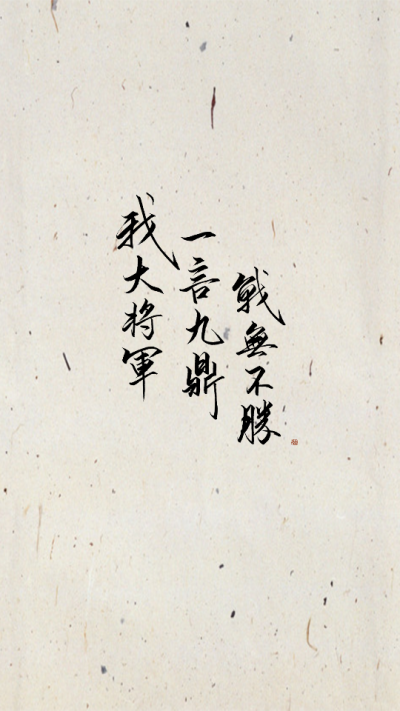 我大將軍
一言九鼎
戰無不勝